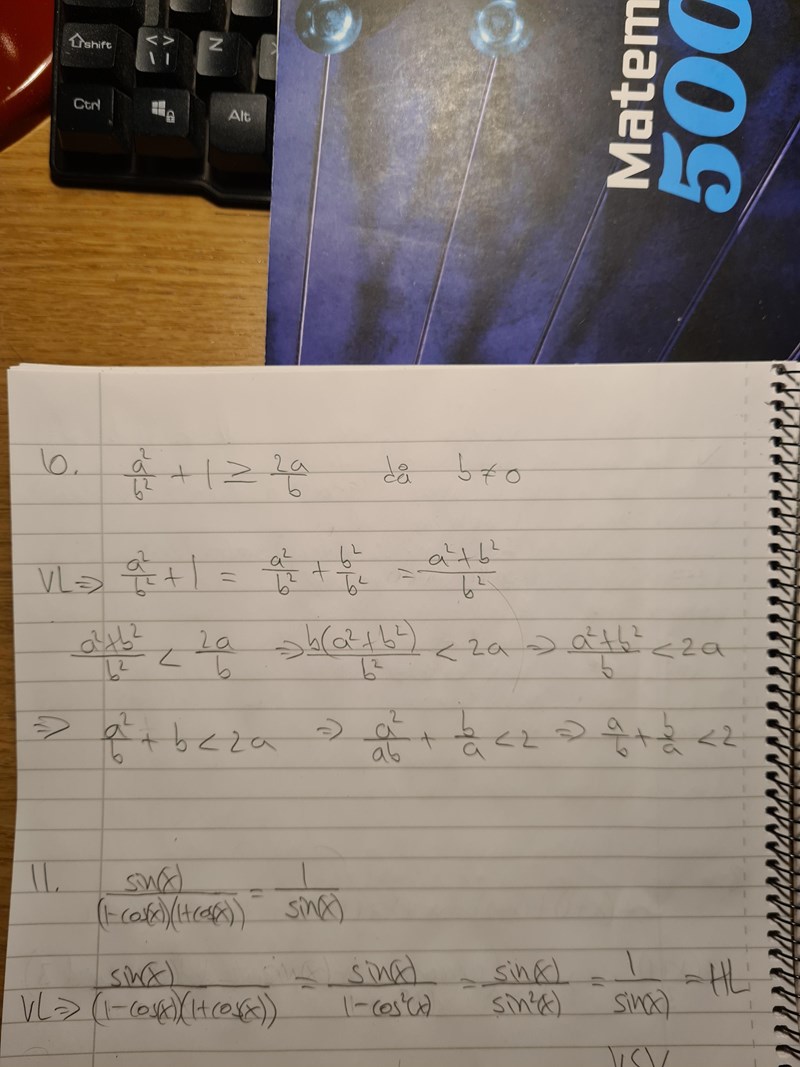 shift
< >
| \
Z
Ctrl
Alt
Matem
500
10. a²/b² + 1 ≥ 2a/b då b ≠ 0
VL ⇒ a²/b² + 1 = a²/b² + b²/b² = (a²+b²)/b²
(a²+b²)/b² < 2a/b ⇒ b(a²+b²)/b² < 2a ⇒ (a²+b²)/b < 2a
⇒ a²/b + b < 2a ⇒ a²/ab + b/a < 2 ⇒ a/b + b/a < 2
11. sin(x)/((1-cos(x))(1+cos(x))) = 1/sin(x)
VL ⇒ sin(x)/((1-cos(x))(1+cos(x))) = sin(x)/(1-cos²(x)) = sin(x)/sin²(x) = 1/sin(x) = HL